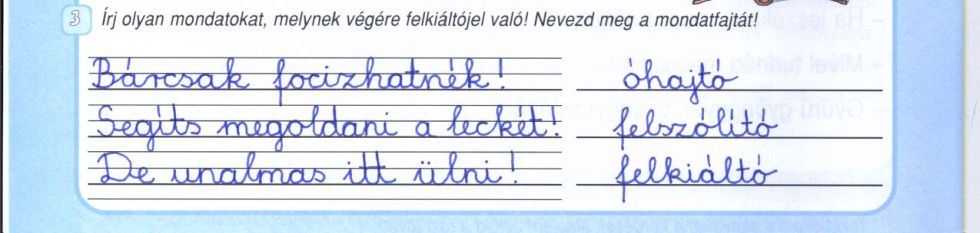 3 Írj olyan mondatokat, melynek végére felkiáltójel való! Nevezd meg a mondatfajtát!
Bárcsak focizhatnék! óhajtó
Segíts megoldani a leckét! felszólító
De unalmas itt ülni! felkiáltó